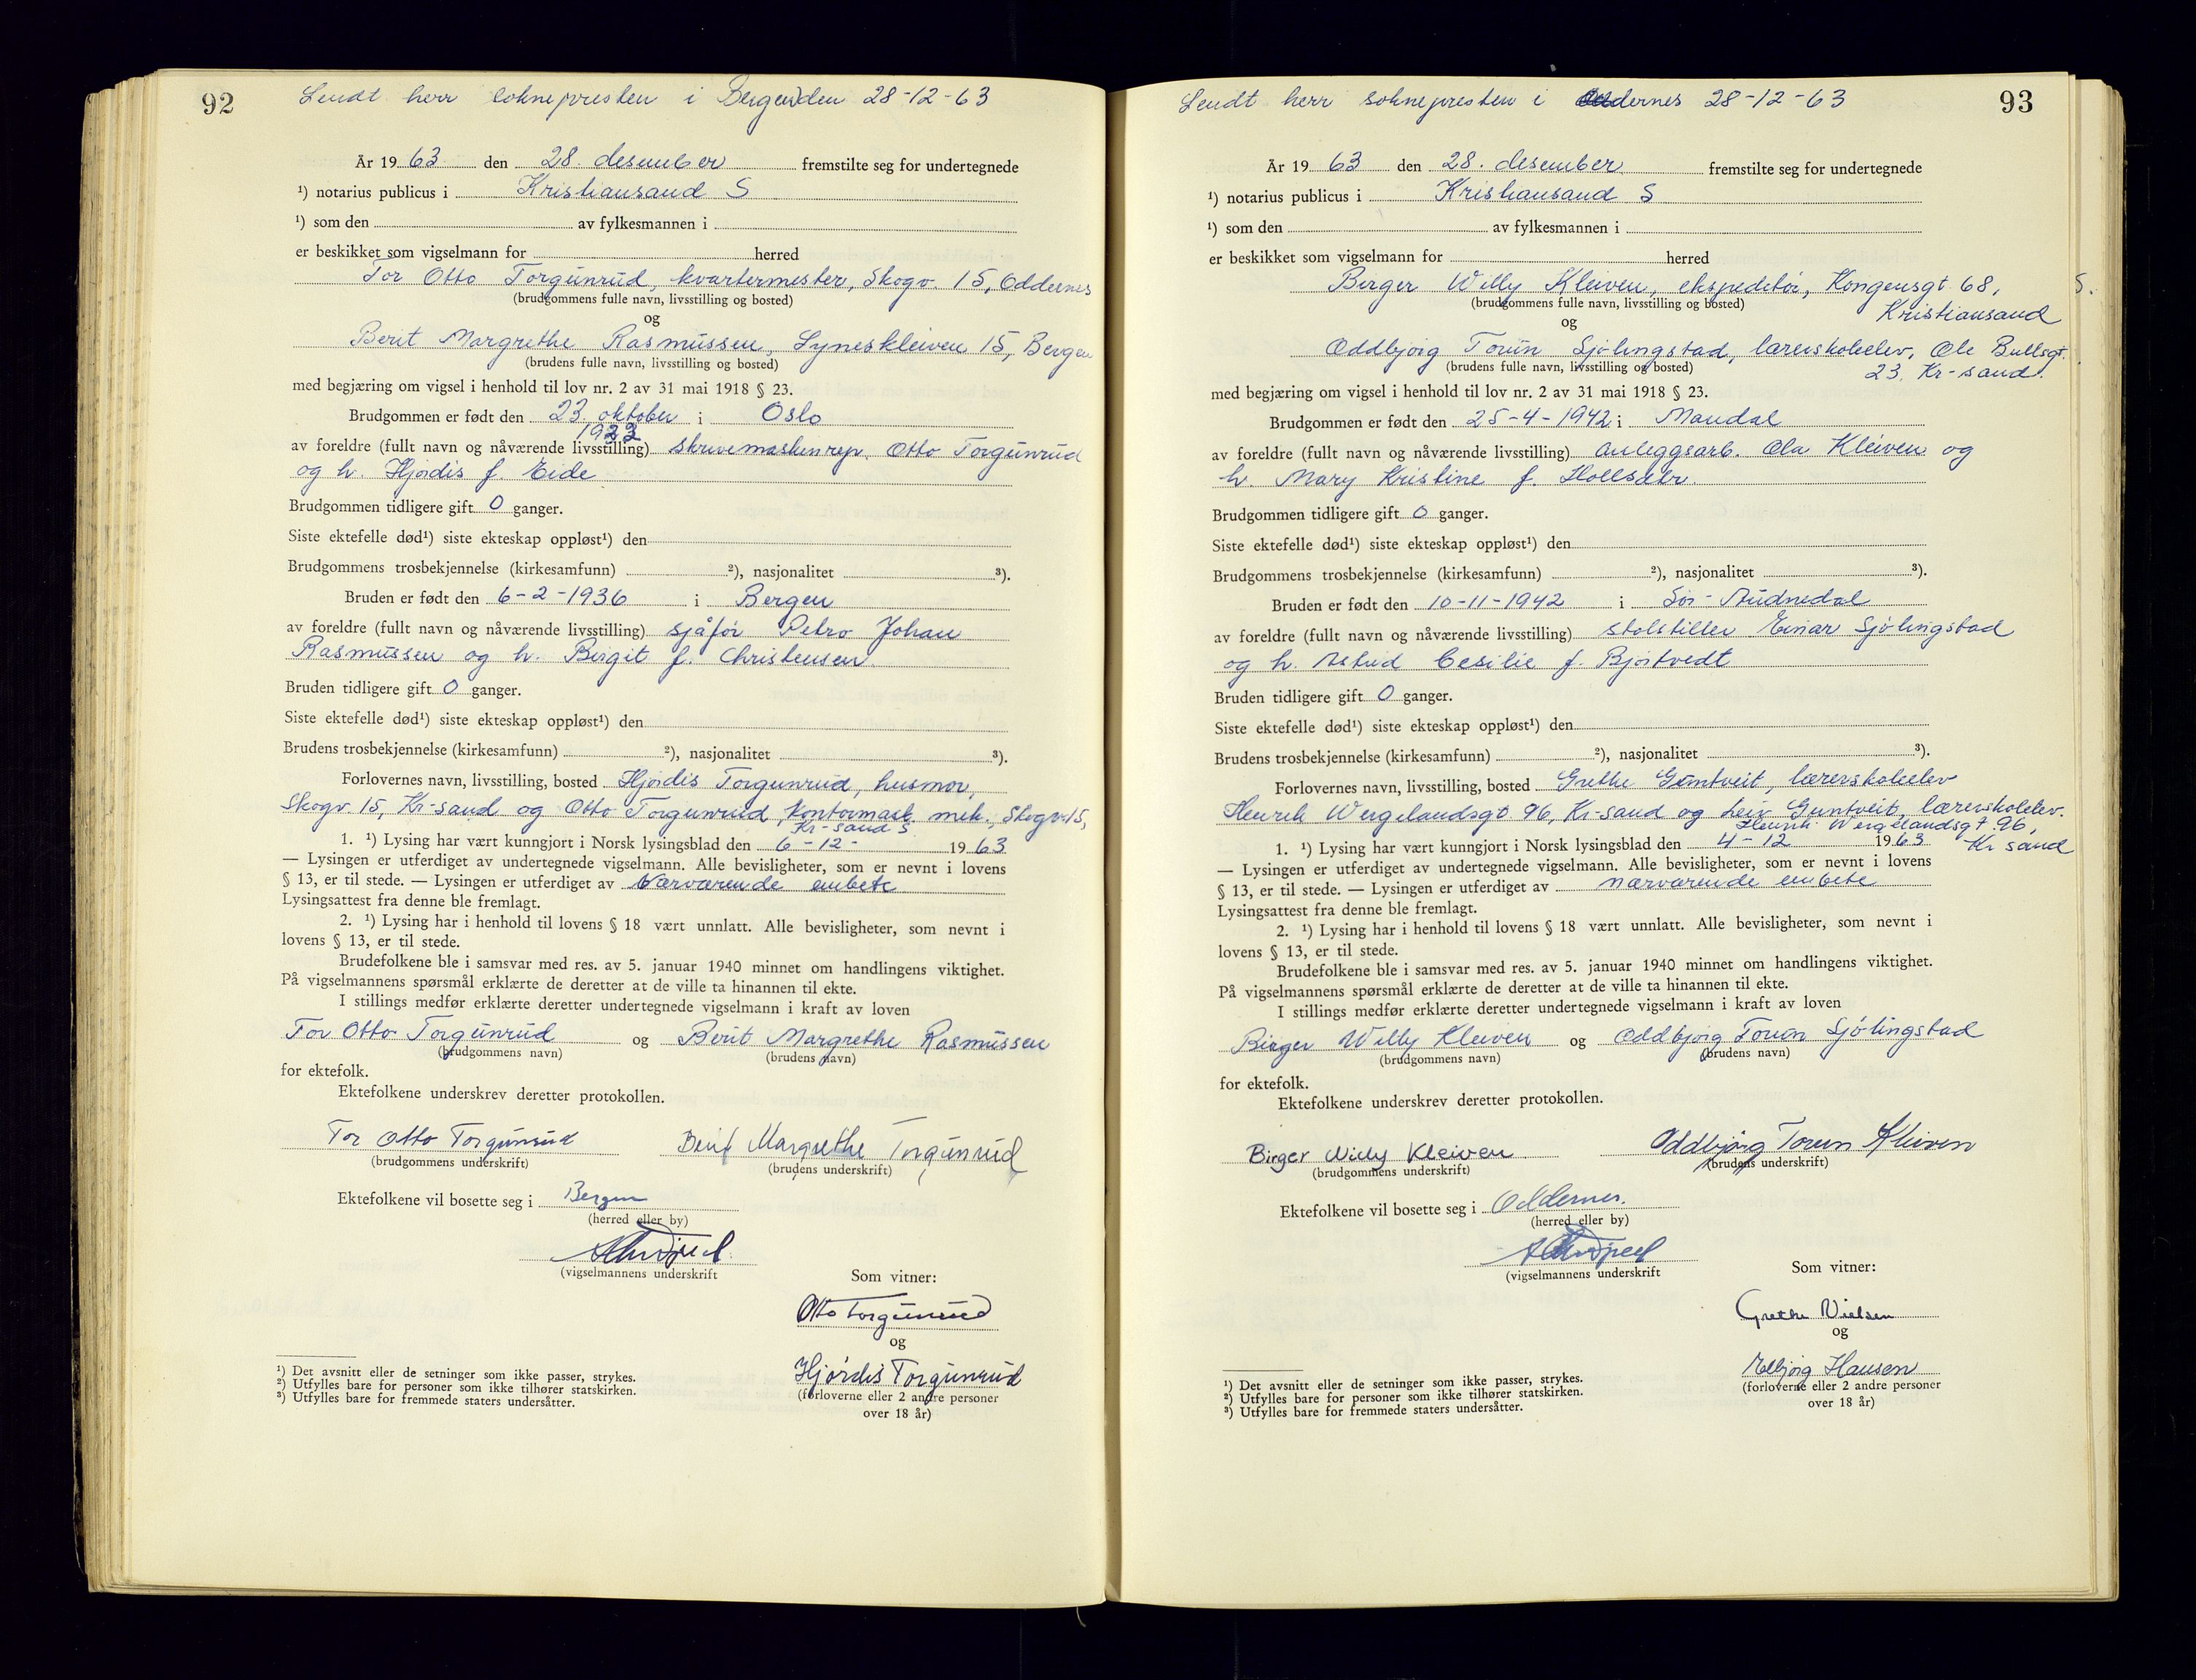 92
Sendt herr soknepresten i Bergen den 28-12-63
År 1963 den 28. desember fremstilte seg for undertegnede
¹) notarius publicus i Kristiansand S
¹) som den av fylkesmannen i
er beskikket som vigselmann for herred
Tor Otto Torgunrud, kvartermester, Skogv. 15, Oddernes
(brudgommens fulle navn, livsstilling og bosted)
og
Berit Margrethe Rasmussen, Lyneskleiven 15, Bergen
(brudens fulle navn, livsstilling og bosted)
med begjæring om vigsel i henhold til lov nr. 2 av 31 mai 1918 § 23.
Brudgommen er født den 23. oktober i Oslo
1933
av foreldre (fullt navn og nåværende livsstilling) skrivemaskinrep. Otto Torgunrud
og h. Hjørdis f. Eide
Brudgommen tidligere gift 0 ganger.
Siste ektefelle død¹) siste ekteskap oppløst¹) den
Brudgommens trosbekjennelse (kirkesamfunn) ²), nasjonalitet ³).
Bruden er født den 6-2-1936 i Bergen
av foreldre (fullt navn og nåværende livsstilling) sjåfør Petro Johan
Rasmussen og h. Birgit f. Christensen
Bruden tidligere gift 0 ganger.
Siste ektefelle død¹) siste ekteskap oppløst¹) den
Brudens trosbekjennelse (kirkesamfunn) ²), nasjonalitet ³).
Forlovernes navn, livsstilling, bosted Hjørdis Torgunrud, husmor,
Skogv. 15, Kr-sand og Otto Torgunrud, kontormask. mek., Skogv. 15,
Kr-sand S
1. ¹) Lysing har vært kunngjort i Norsk lysingsblad den 6-12- 1963
— Lysingen er utferdiget av undertegnede vigselmann. Alle bevisligheter, som er nevnt i lovens
§ 13, er til stede. — Lysingen er utferdiget av nærværende embete
Lysingsattest fra denne ble fremlagt.
2. ¹) Lysing har i henhold til lovens § 18 vært unnlatt. Alle bevisligheter, som nevnt i
lovens § 13, er til stede.
Brudefolkene ble i samsvar med res. av 5. januar 1940 minnet om handlingens viktighet.
På vigselmannens spørsmål erklærte de deretter at de ville ta hinannen til ekte.
I stillings medfør erklærte deretter undertegnede vigselmann i kraft av loven
Tor Otto Torgunrud og Berit Margrethe Rasmussen
(brudgommens navn) (brudens navn)
for ektefolk.
Ektefolkene underskrev deretter protokollen.
Tor Otto Torgunrud Berit Margrethe Torgunrud
(brudgommens underskrift) (brudens underskrift)
Ektefolkene vil bosette seg i Bergen
(herred eller by)
(vigselmannens underskrift
Som vitner:
Otto Torgunrud
og
Hjørdis Torgunrud
(forloverne eller 2 andre personer
over 18 år)
¹) Det avsnitt eller de setninger som ikke passer, strykes.
²) Utfylles bare for personer som ikke tilhører statskirken.
³) Utfylles bare for fremmede staters undersåtter.
93
Sendt herr soknepresten i Oddernes 28-12-63
År 1963 den 28. desember fremstilte seg for undertegnede
¹) notarius publicus i Kristiansand S
¹) som den av fylkesmannen i
er beskikket som vigselmann for herred
Birger Willy Kleiven, ekspeditør, Kongensgt 68,
(brudgommens fulle navn, livsstilling og bosted) Kristiansand S.
og
Oddbjørg Torun Sjølingstad, lærerskoleelev, Ole Bullsgt.
(brudens fulle navn, livsstilling og bosted) 23. Kr-sand.
med begjæring om vigsel i henhold til lov nr. 2 av 31 mai 1918 § 23.
Brudgommen er født den 25-4-1942 i Mandal
av foreldre (fullt navn og nåværende livsstilling) anleggsarb. Ola Kleiven og
h. Mary Kristine f.
Brudgommen tidligere gift 0 ganger.
Siste ektefelle død¹) siste ekteskap oppløst¹) den
Brudgommens trosbekjennelse (kirkesamfunn) ²), nasjonalitet ³).
Bruden er født den 10-11-1942 i Sør-Audnedal
av foreldre (fullt navn og nåværende livsstilling) Einar Sjølingstad
og h. Astrid Cesilie f. Bjørtvedt
Bruden tidligere gift 0 ganger.
Siste ektefelle død¹) siste ekteskap oppløst¹) den
Brudens trosbekjennelse (kirkesamfunn) ²), nasjonalitet ³).
Forlovernes navn, livsstilling, bosted Grethe Guntveit, lærerskoleelev
Henrik Wergelandsgt 96, Kr-sand og Leiv Guntveit, lærerskoleelev.
Henrik Wergelandsgt. 96,
1. ¹) Lysing har vært kunngjort i Norsk lysingsblad den 4-12 1963 Kr sand
— Lysingen er utferdiget av undertegnede vigselmann. Alle bevisligheter, som er nevnt i lovens
§ 13, er til stede. — Lysingen er utferdiget av nærværende embete
Lysingsattest fra denne ble fremlagt.
2. ¹) Lysing har i henhold til lovens § 18 vært unnlatt. Alle bevisligheter, som nevnt i
lovens § 13, er til stede.
Brudefolkene ble i samsvar med res. av 5. januar 1940 minnet om handlingens viktighet.
På vigselmannens spørsmål erklærte de deretter at de ville ta hinannen til ekte.
I stillings medfør erklærte deretter undertegnede vigselmann i kraft av loven
Birger Willy Kleiven og Oddbjørg Torun Sjølingstad
(brudgommens navn) (brudens navn)
for ektefolk.
Ektefolkene underskrev deretter protokollen.
Birger Willy Kleiven Oddbjørg Torun Kleiven
(brudgommens underskrift) (brudens underskrift)
Ektefolkene vil bosette seg i Oddernes.
(herred eller by)
(vigselmannens underskrift
Som vitner:
Grethe Nielsen
og
Hansen
(forloverne eller 2 andre personer
over 18 år)
¹) Det avsnitt eller de setninger som ikke passer, strykes.
²) Utfylles bare for personer som ikke tilhører statskirken.
³) Utfylles bare for fremmede staters undersåtter.